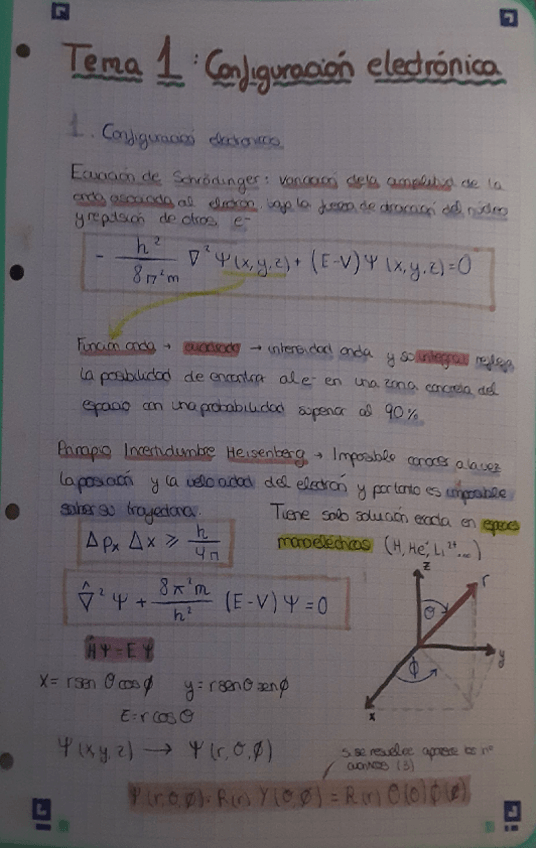 Tema 1: Configuración electrónica
1. Configuració electrónica
Ecuación de Schrödinger: variación de la amplitud de la
onda asociada al electrón, bajo la fuerza de atracción del núcleo
y repulsión de otros e⁻
- h² / 8π²m ∇² Ψ(x,y,z) + (E-V) Ψ (x,y,z) = 0
Función onda → cuadrado → intensidad onda y su integral refleja
la posibilidad de encontrar al e⁻ en una zona concreta del
espacio con una probabilidad superior al 90%.
Principio Incertidumbre Heisenberg → Imposible conocer a la vez
la posición y la velocidad del electrón y por tanto es imposible
saber su trayectoria.
Tiene solo solución exacta en especies
monoeléctricas (H, He⁺, Li²⁺...)
Δpx Δx ⩾ h / 4π
∇̂² Ψ + 8π²m / h² (E-V) Ψ = 0
ĤΨ = EΨ
z
r
θ
y
ϕ
x
x = r sen θ cos ϕ y = r sen θ sen ϕ
z = r cos θ
Ψ (x,y,z) → Ψ (r, θ, ϕ)
si se resuelve aparece los nº
cuánticos (3)
Ψ(r,θ,ϕ) = R(r) Y(θ,ϕ) = R(r) Θ(θ) ϕ(ϕ)